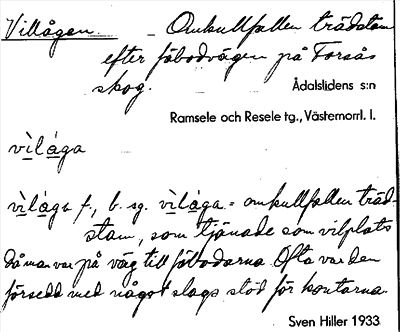 Villågen. – Omkullfallen trädstam
efter fäbodvägen på Forsås
skog.
Ådalslidens s:n
Ramsele och Resele tg., Västernorrl. l.
vìlåga
vìlåga f., b. sg. vìlåga = omkullfallen träd-
stam, som tjänade som vilplats
då man var på väg till fäbodarna. Ofta var den
försedd med något slags stöd för kontarna.
Sven Hiller 1933